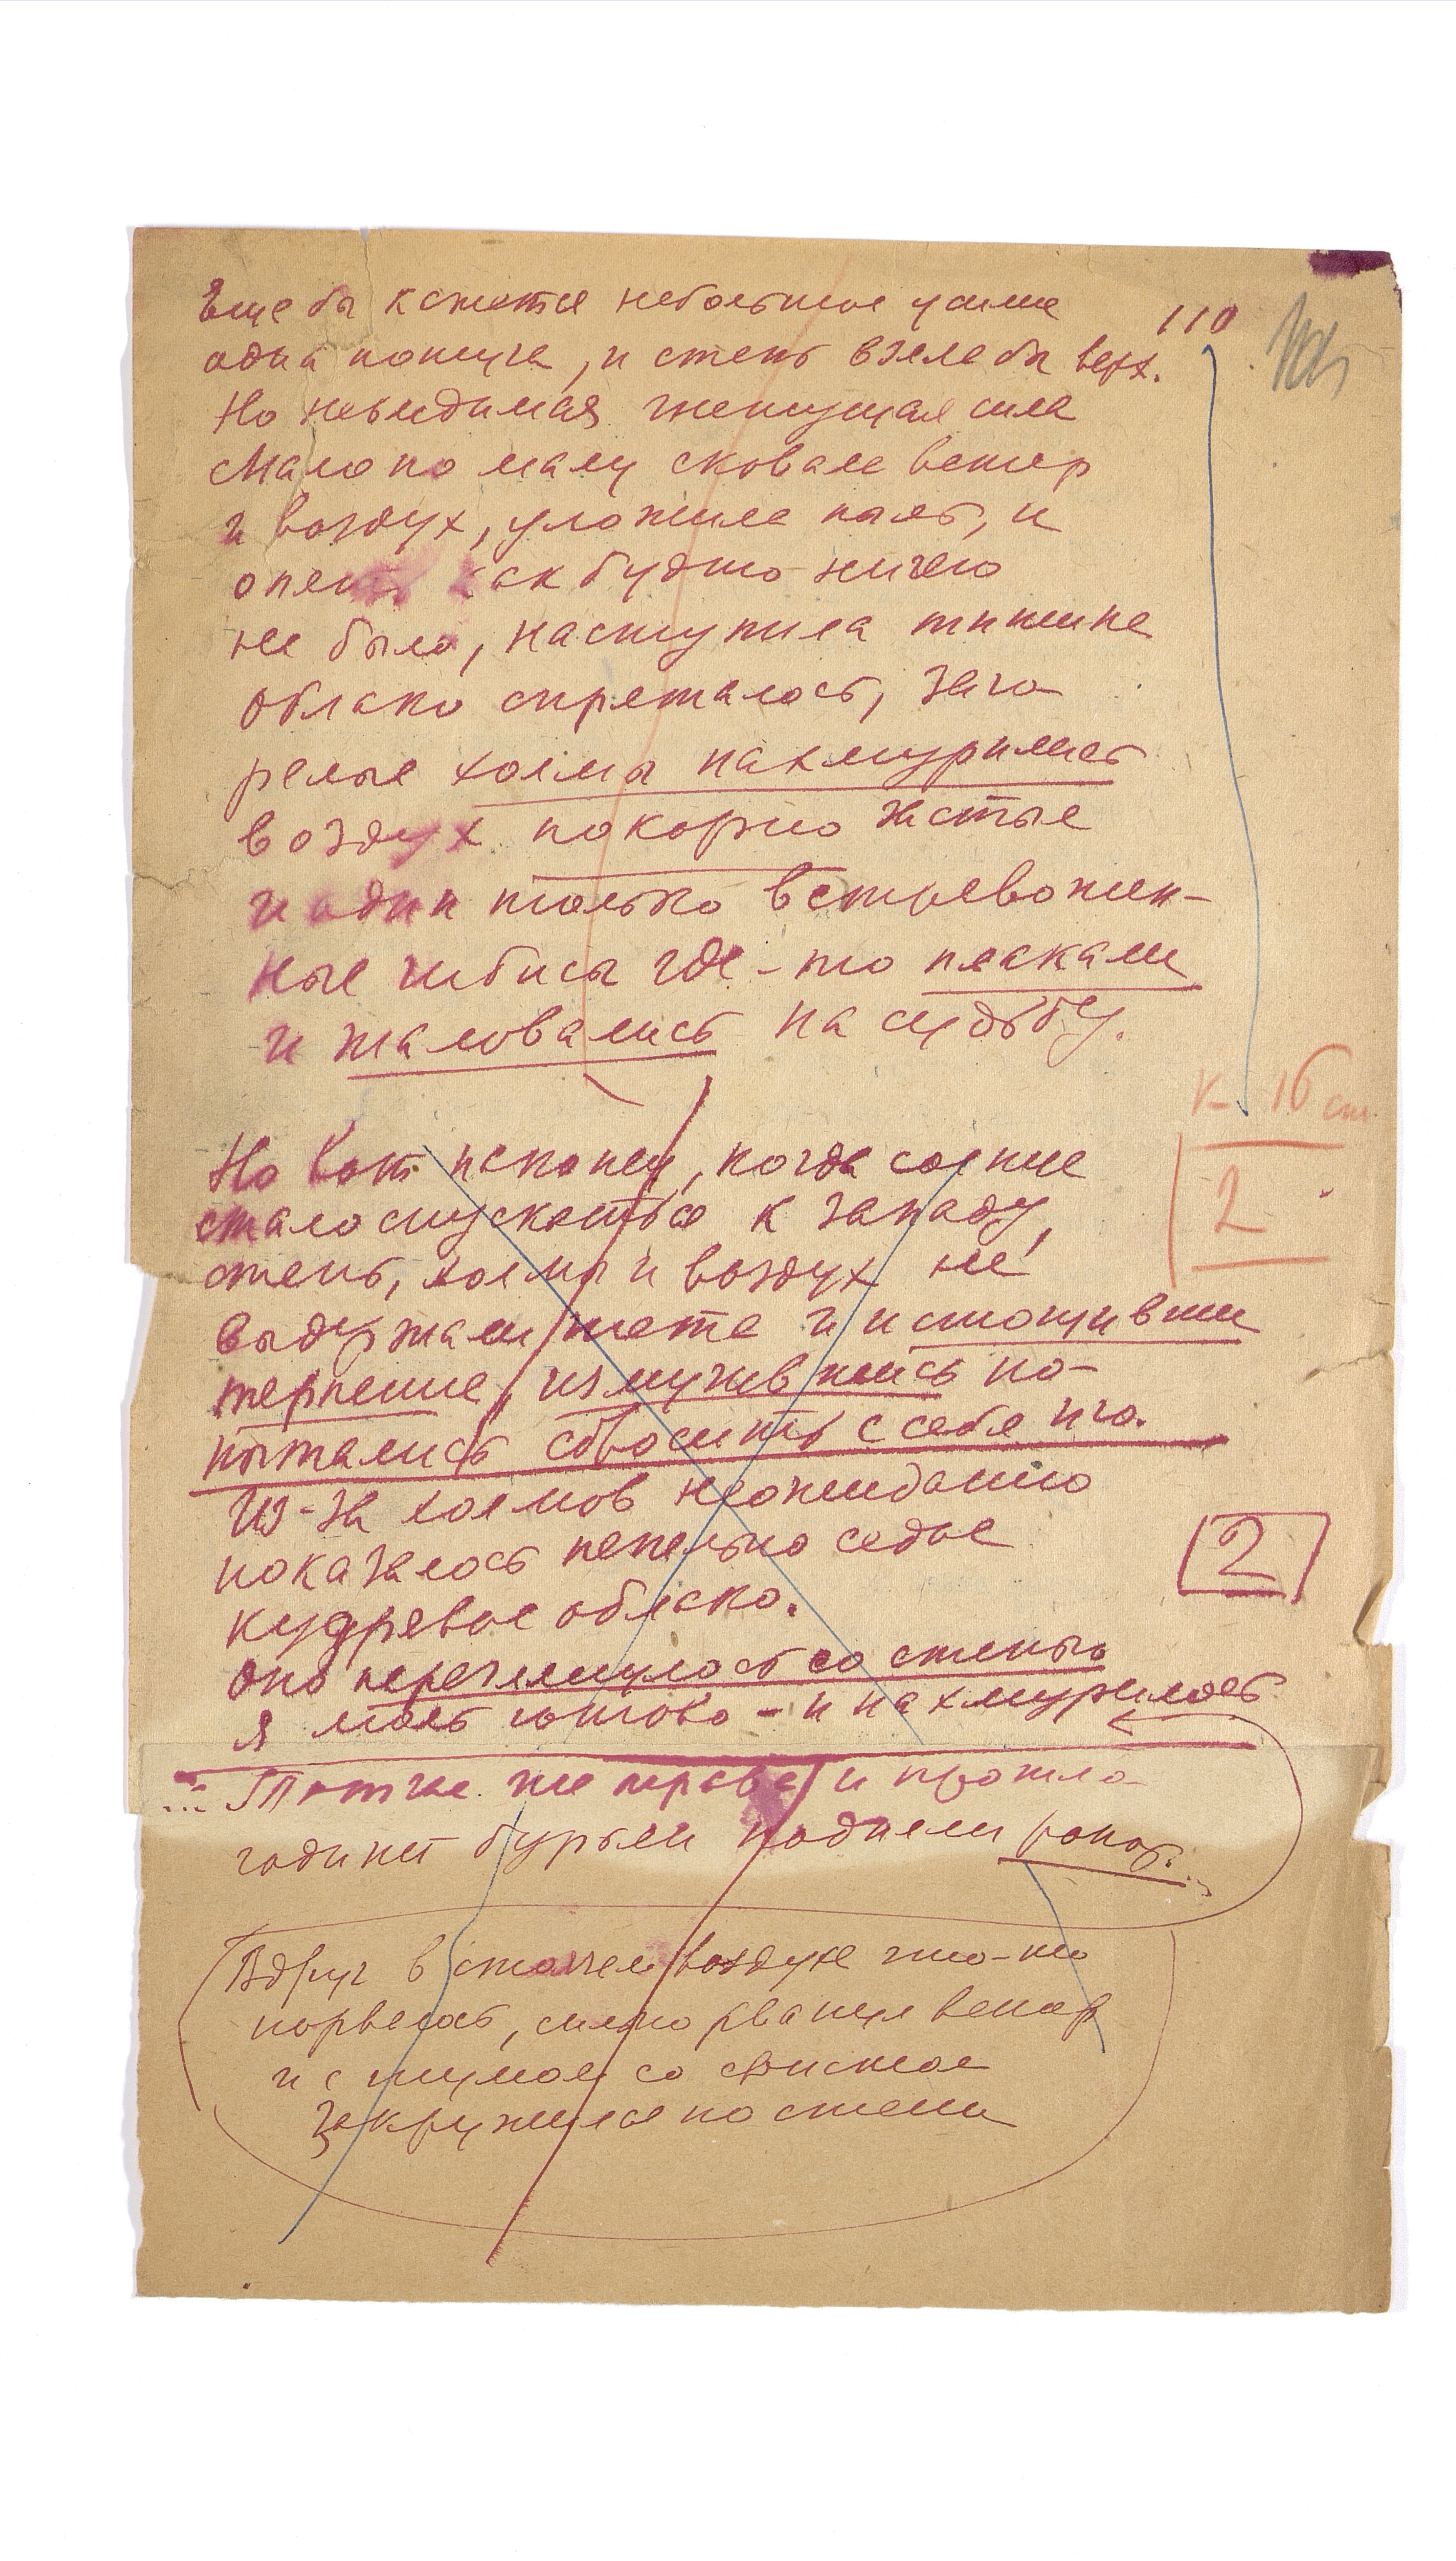 Еще бы кажется небольшое усилие
110
одна потуга, и степь взяла бы верх.
Но невидимая гнетущая сила
Мало по малу сковала ветер
и воздух, уложила пыль, и
опять как будто ничего
не было, наступила тишина
Облако спряталось, заго
релые холмы нахмурились
воздух покорно застыл
и одни только встревожен-
ные чибисы где-то плакали
и жаловались на судьбу.
К 16 ст
2
Но вот наконец, когда солнце
стало спускаться к западу,
степь, холмы и воздух не
выдержали гнета и истощивши
терпение, измучившись по-
пытались сбросить с себя иго.
Из-за холмов неожиданно
показалось пепельно седое
кудрявое облако.
2
Оно переглянулось со степью
я мол готово - и нахмурилось
... Тотчас же трава и прошло-
годний бурьян подняли ропот...
Вдруг в стоячем воздухе что-то
порвалось, сильно рванул ветер
и с шумом со свистом
закружился по степи